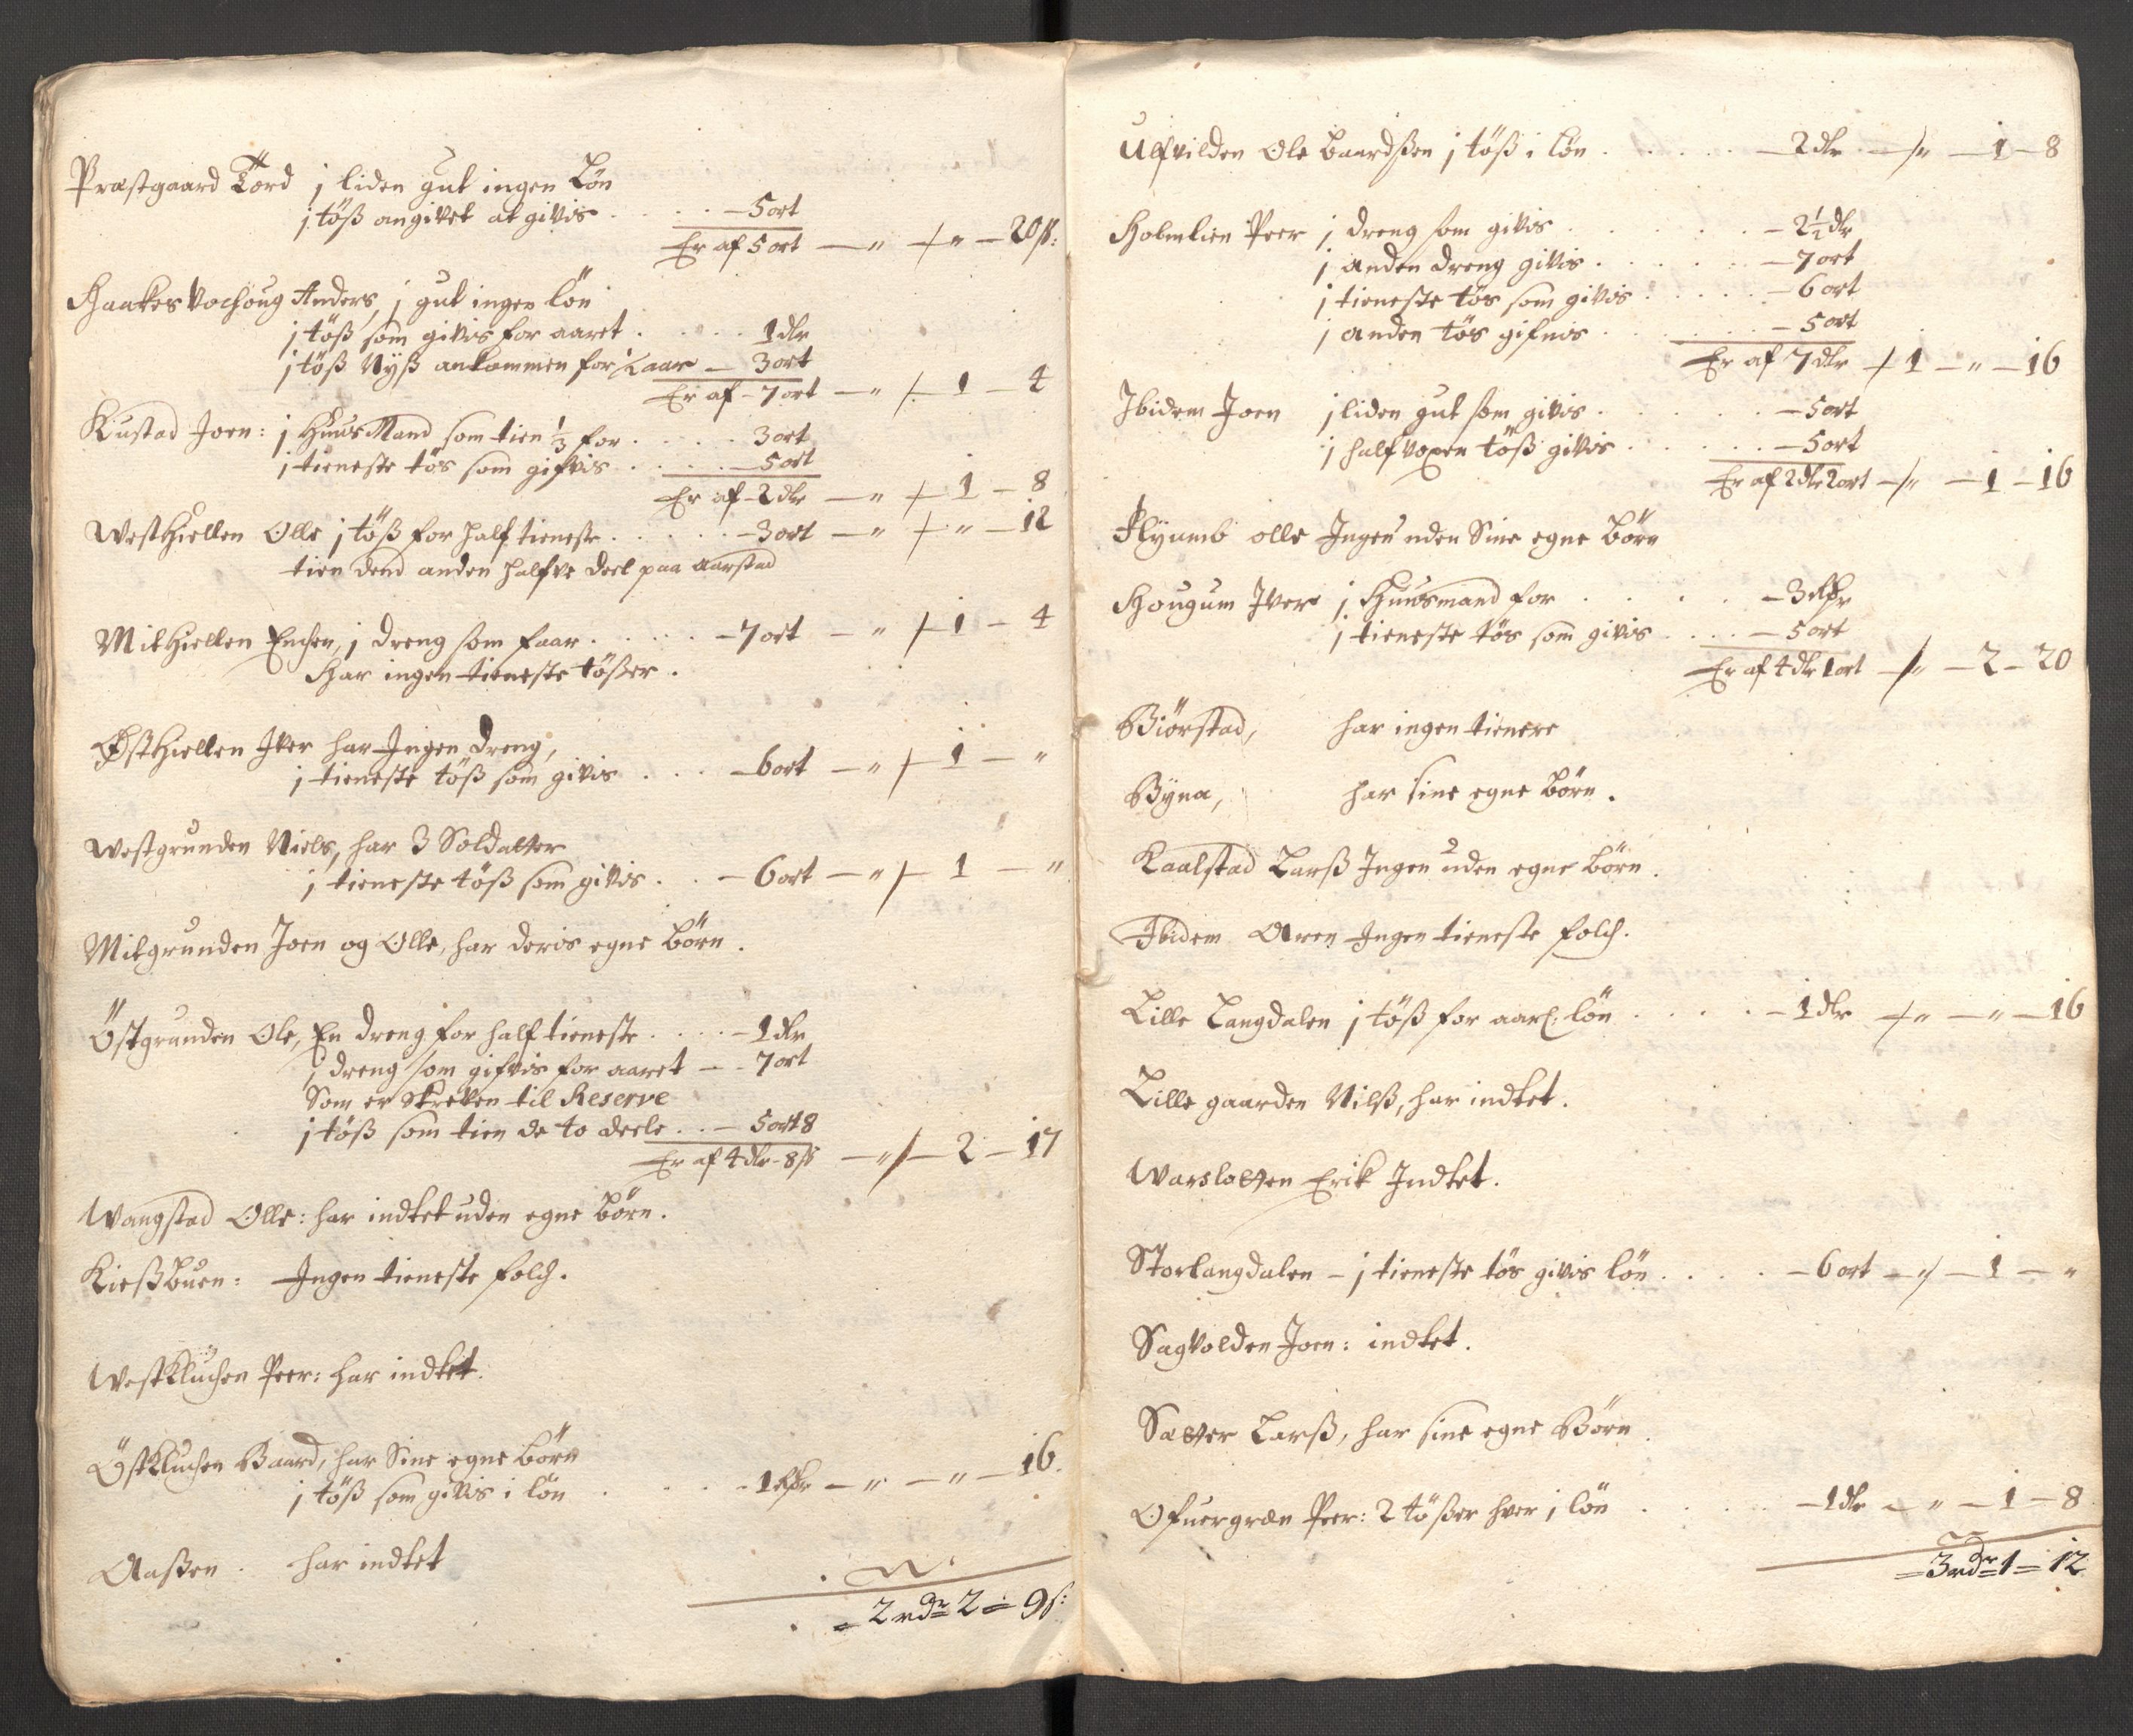 Præstgaard Tord j liden gut ingen Løn
j töß angivet at givis . . . . — 5 ort
Er af 5 ort — " — " — 20 ß:
Haakes Vochoug Anders, j gut ingen løn
j töß som givis for aaret . . . . 1 dlr
j töß Nyß ankommen for ½ aar — 3 ort
Er af - 7 ort — " — 1 — 4
Kustad Joen: j HuusMand som tien ⅓ for . . . . 3 ort
j tieneste tös som gifvis . . . . — 5 ort
Er af - 2 dlr — " — 1 — 8
WestHiellen Olle j töß for half tieneste . . . . . — 3 ort — " — " — 12
tien dend anden halfve deel paa Aarstad
MitHiellen Enchen, j dreng som faar . . . . . — 7 ort — " — 1 — 4
Har ingen tieneste tößer .
ØstHiellen Iver har Ingen dreng,
j tieneste töß som givis . . . — 6 ort — " — 1 — "
Westgrunden Niels, har 3 Soldatter
j tieneste töß som givis . . — 6 ort — " — 1 — "
Mitgrunden Joen og Olle, har deris egne Börn .
Östgrunden Ole, En dreng for half tieneste . . . . — 1 dlr
j dreng som gifvis for aaret — . 7 ort
Som er skreven til Reserve
j töß som tien de to deele . . — 5 ort 8
Er af 4 dlr - 8 ß — " — 2 — 17
Wangstad Olle: har indtet uden egne Börn .
Kießbuen: Ingen tieneste folch .
WestKluchen Peer: har indtet .
ÖstKluchen Baard, har Sine egne Börn
j töß som givis i lön . . . . 1 Rdr — " — " — 16 .
Aaßen . har indtet
= 2 rdr = 2 = 9 ß:
Ulfvilden Ole Baardßen j töß i lön . . . . . — 2 dlr — " — 1 — 8
Holmlien Peer j dreng som givis . . . . . — 2½ dlr
j anden dreng givis . . . . . — 7 ort
j tieneste tös som givis . . . . . — 6 ort
j anden tös gifvis . . . . . — 5 ort
Er af 7 dlr — 1 — " — 16
Ibidem Joen j liden gut som givis . . . . . — 5 ort
j halfvoxen töß givis . . . . . — 5 ort
Er af 2 dlr 2 ort — " — 1 — 16
Flyumb olle Ingen uden Sine egne Börn
Hougum Iver j Huusmand for . . . . — 3 Rdr
j tieneste tös som givis . . . — 5 ort
Er af 4 dlr 1 ort — " — 2 — 20
Biörstad, har ingen tienere
Byna, har sine egne Börn .
Kaalstad Larß Ingen uden egne Börn .
Ibidem Aren Ingen tieneste folch .
Lille Langdalen j töß for aarl: lön . . . . — 1 dlr — " — " — 16
Lille gaarden Nilß, har indtet .
Warslotten Erik Indtet .
Storlangdalen — j tieneste tös givis lön . . . . — 6 ort — " — 1 — "
Sagvolden Joen: indtet .
Sætter Larß, har sine egne Börn .
Ofuergræn Peer: 2 tößer hver i lön . . . . — 1 dlr — " — 1 — 8
= 3 rdr = 1 = 12